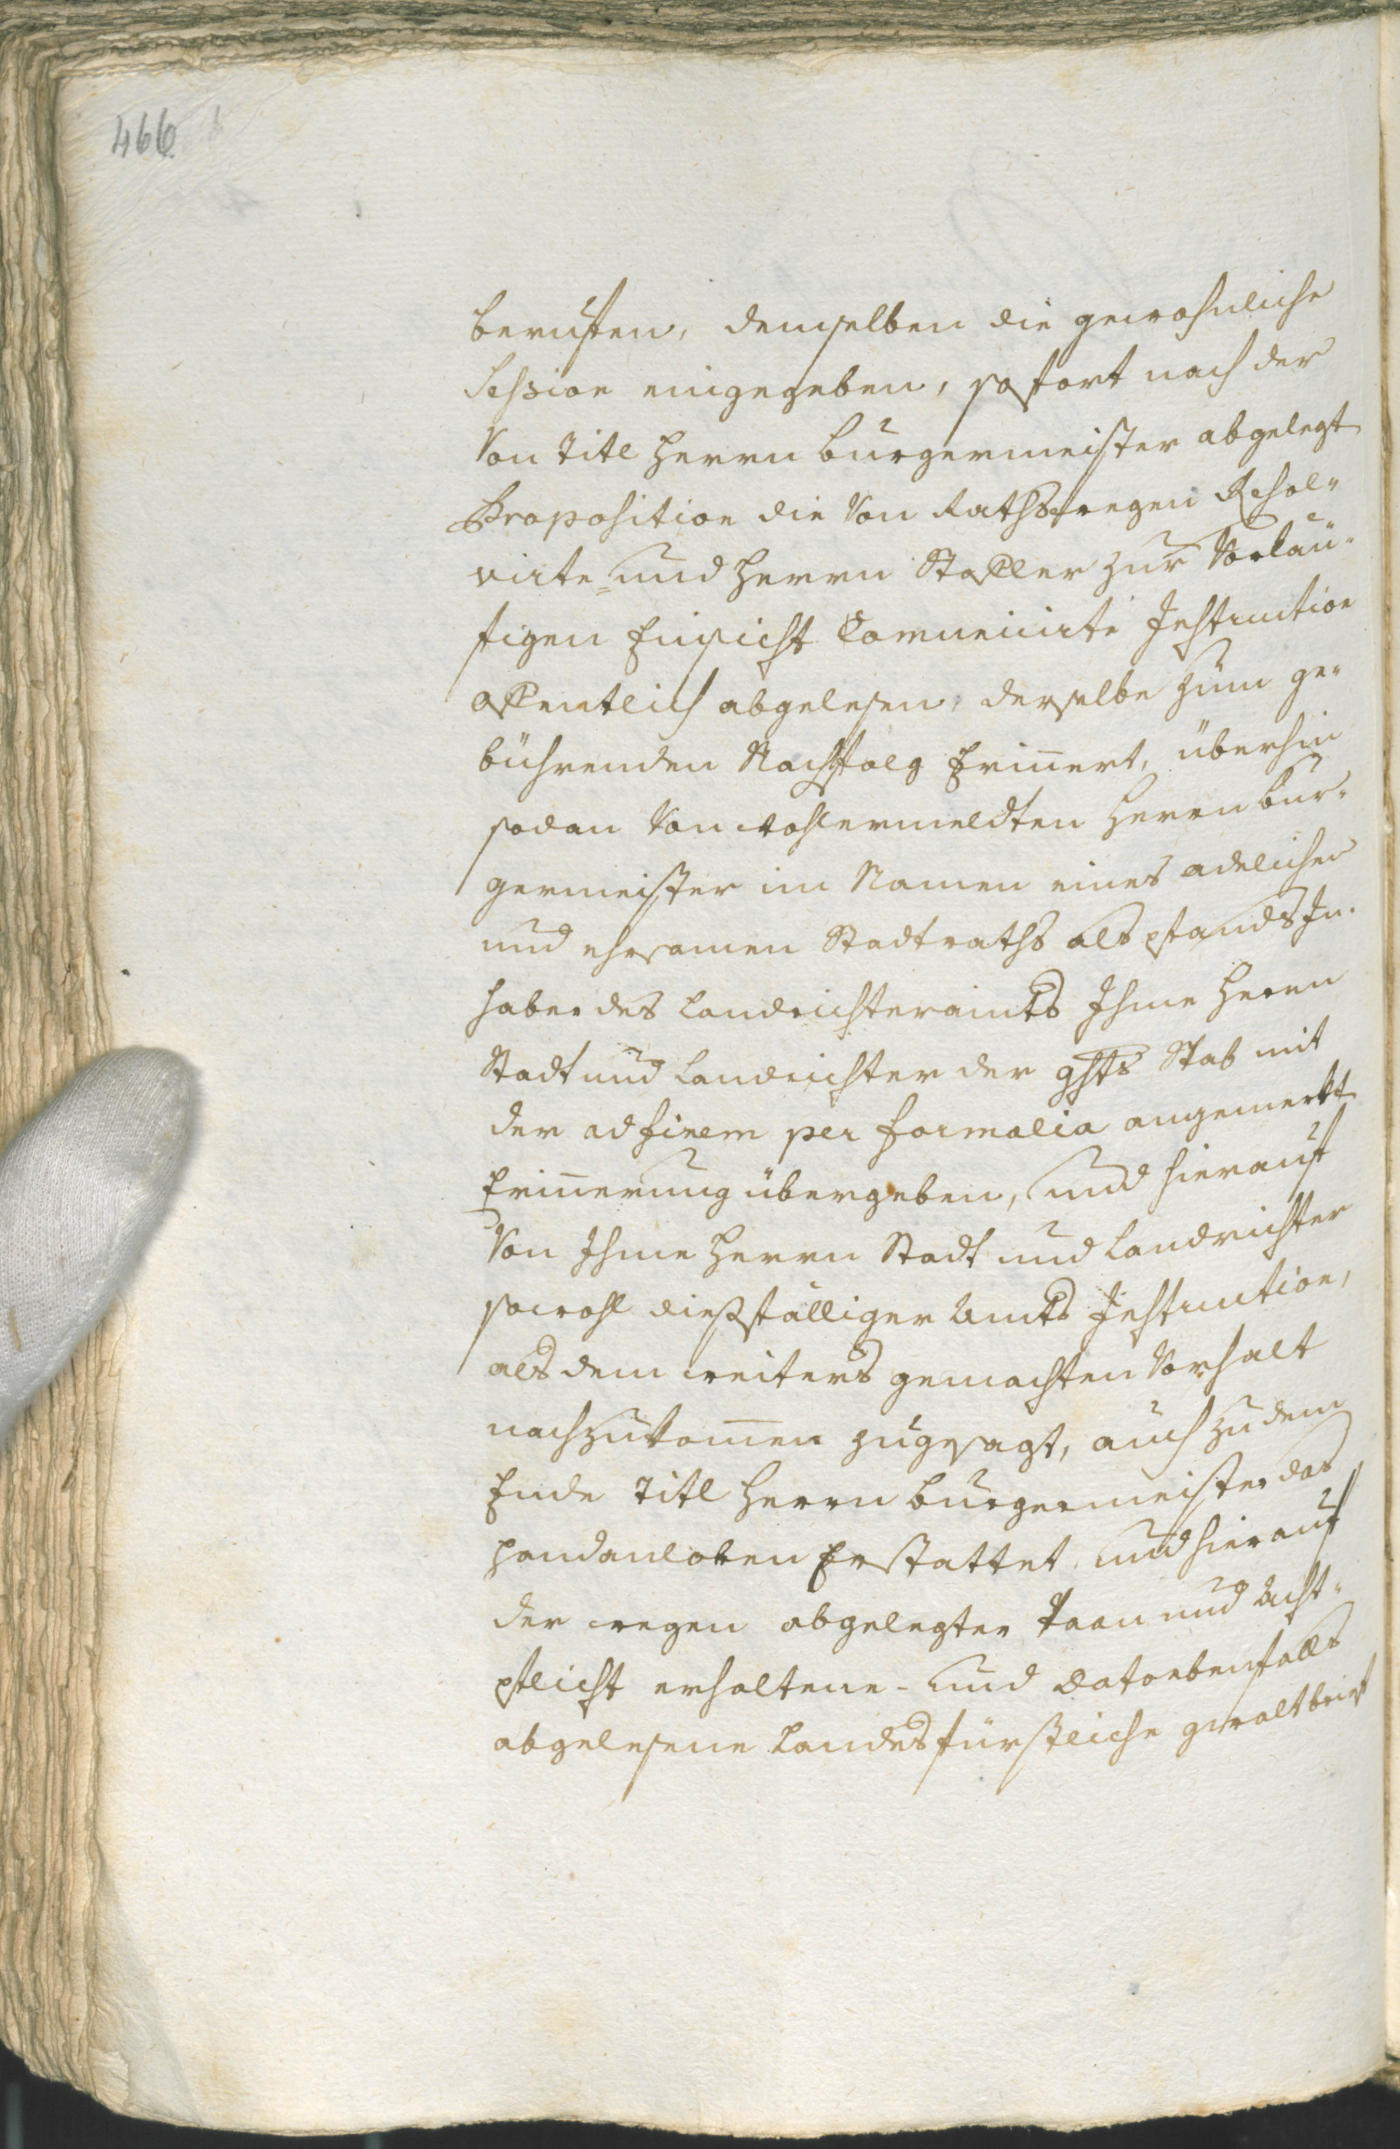 466
beruffen, demselben die gewohnliche
Session eingegeben, sofort nach der
Von Titl Herrn Burgermeister abgelegt
Proposition die Von Rathswegen Resol-
virte= und Herrn Stoffler zur Vorläu-
figen Einsicht Comunicirte Instruction
offentlich abgelesen, derselbe zum ge-
bührenden Nachfolg Erinnert, überhin
sodan Von wohlermeldten Herrn Bur-
germeister im Namen eines adelichen
und ehrsamen Stadtraths als pfandsIn-
haber des Landrichteramts Ihme Herrn
Stadt und Landrichter der ghts Stab mit
der ad finem per formalia angemerkt
Erinnerung übergeben, und hierauf
Von Ihme Herrn Stadt und Landrichter
sowohl dießfälliger Amts Instruction,
als dem weiters gemachten Vorhalt
nachzukomen zugesagt, auch zu dem
Ende Titl Herrn Burgermeister das
Handanloben Erstattet, und hierauf
der wegen abgelegter Baan und Acht-
pflicht erhaltene- und dato ebenfalls
abgelesene Landesfürstliche gwaltbrief